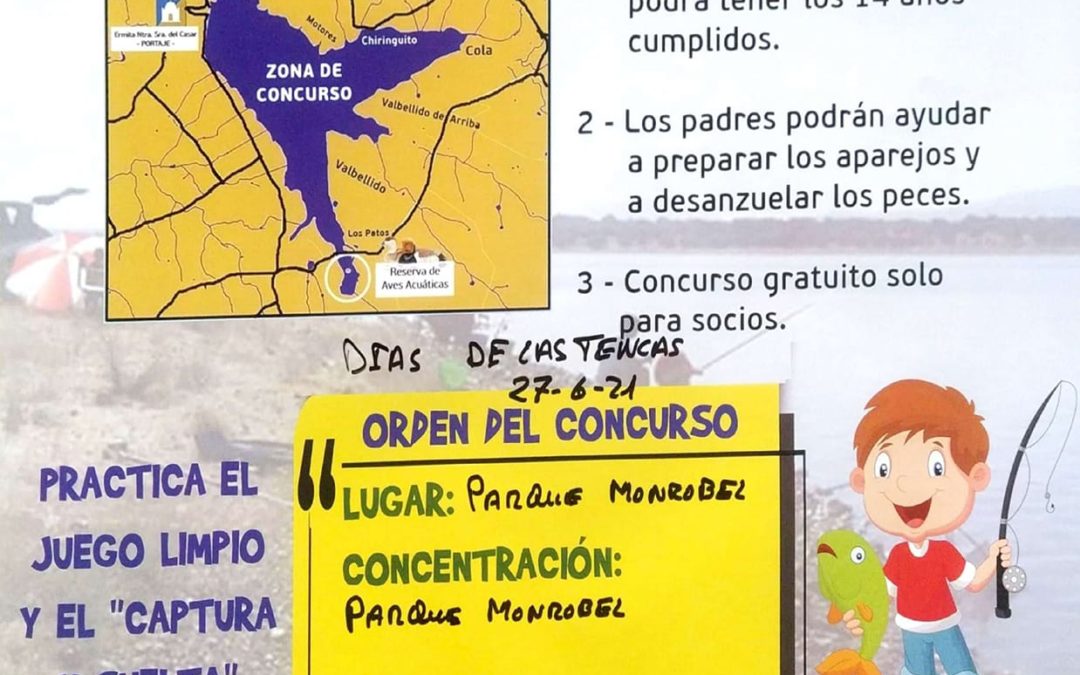 Ermita Ntra. Sra. del Casar
- PORTAJE -
Motores
Chiringuito
Cola
ZONA DE
CONCURSO
Valbellido de Arriba
Valbellido
Los Patos
Reserva de
Aves Acuáticas
podrá tener los 14 años
cumplidos.
2 - Los padres podrán ayudar
a preparar los aparejos y
a desanzuelar los peces.
3 - Concurso gratuito solo
para socios.
DIAS DE LAS TENCAS
27-6-21
ORDEN DEL CONCURSO
LUGAR: PARQUE MONROBEL
CONCENTRACIÓN:
PARQUE MONROBEL
PRACTICA EL
JUEGO LIMPIO
Y EL "CAPTURA